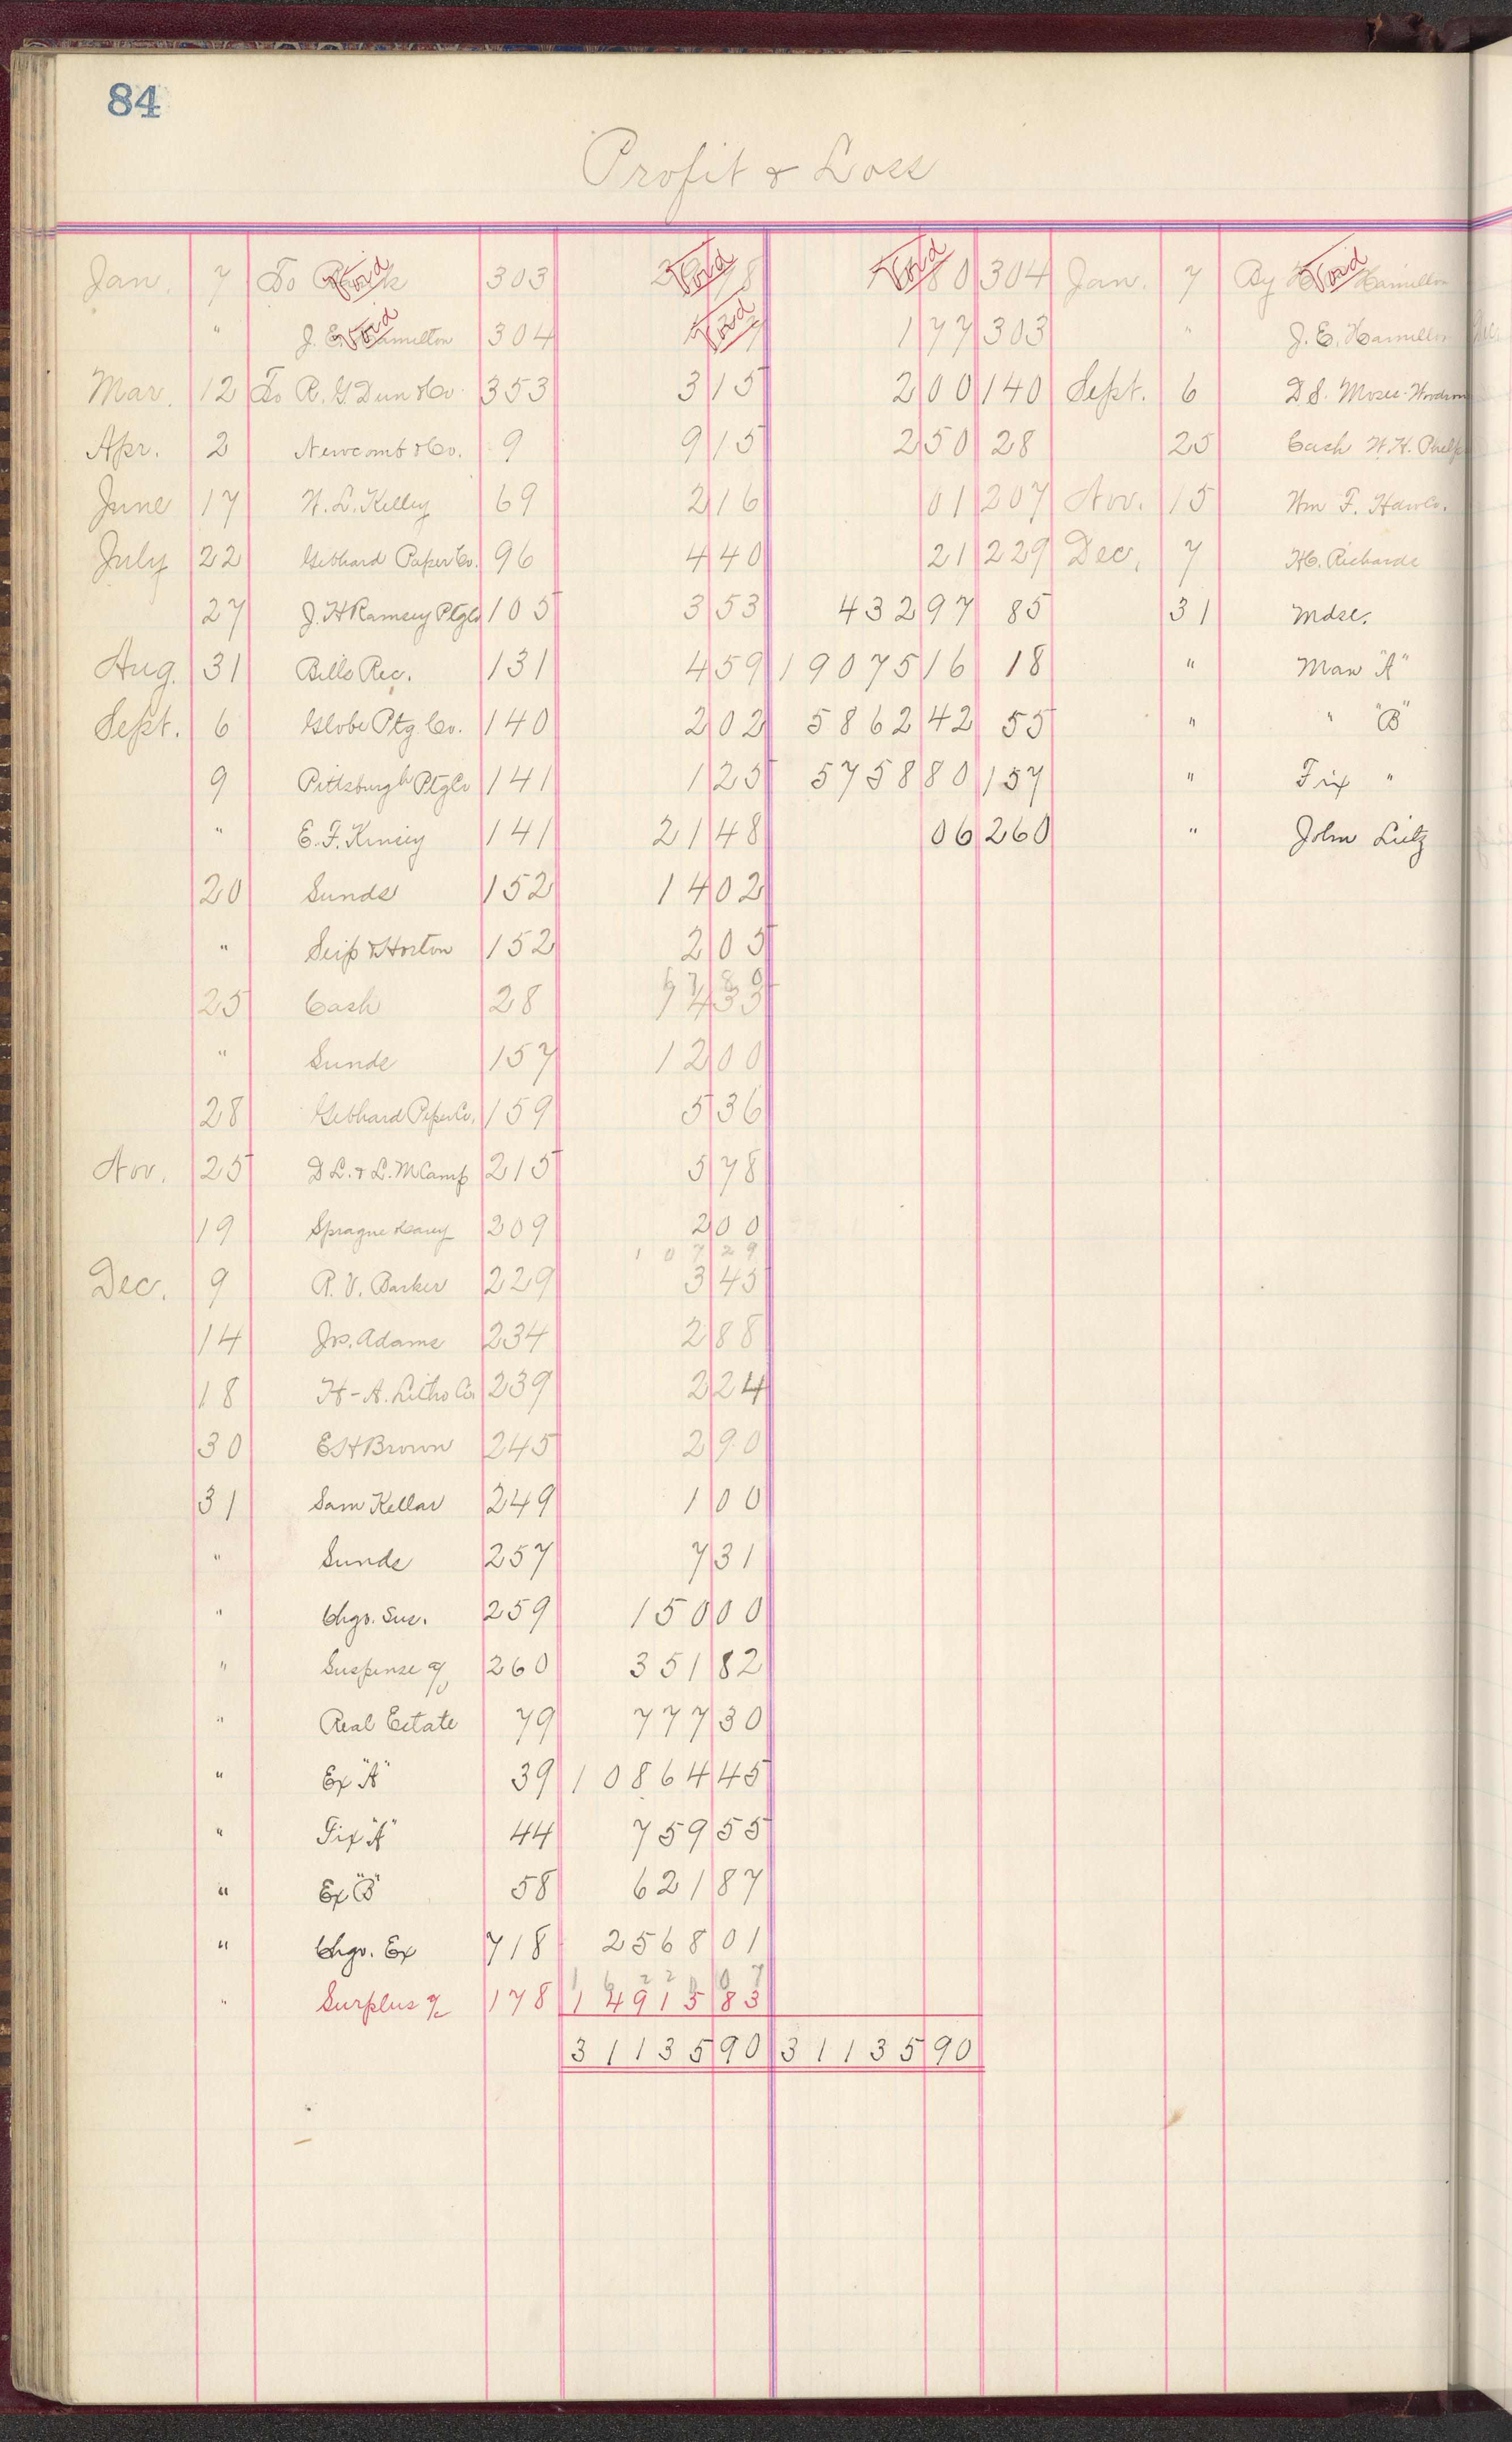 84
Profit & Loss
Jan. 7 To Void 303 Void Void 0 304 Jan. 7 By Void Hamilton
" J. E. Void Hamilton 304 Void 1 77 303 " J. E. Hamilton
Mar. 12 To R. G. Dun & Co. 353 3 15 2 00 140 Sept. 6 D. S. Moses
Apr. 2 Newcomb & Co. 9 9 15 2 50 28 25 Cash H. H.
June 17 H. L. Kelley 69 2 16 01 207 Nov. 15 Wm F.
July 22 Gebhard Paper Co. 96 4 40 21 229 Dec. 7 Richards
27 J. H Ramsey Ptg Co 105 3 53 432 97 85 31 Mdse.
Aug. 31 Bills Rec. 131 4 59 19075 16 18 " Man "A"
Sept. 6 Globe Ptg. Co. 140 2 02 5862 42 55 " " "B"
9 Pittsburgh Ptg Co 141 1 25 5758 80 157 " Fix "
" E. F. 141 21 48 06 260 " John Lutz
20 Sunds 152 14 02
" Seip & Horton 152 2 05
25 Cash 28
" Sunds 157 12 00
28 Gebhard Paper Co. 159 5 36
Nov. 25 D L. & L. M Camp 215 5 78
19 Sprague 209 2 00
107 29
Dec. 9 R. V. Barker 229 3 45
14 Jos. Adams 234 2 88
18 H-A. Litho Co 239 2 24
30 E H Brown 245 2 90
31 Sam Kellar 249 1 00
" Sunds 257 7 31
" Chgo. Sus. 259 150 00
" Suspense a/c 260 351 82
" Real Estate 79 777 30
" Ex "A" 39 10864 45
" Fix "A" 44 759 55
" Ex "B" 58 621 87
" Chgo. Ex 718 2568 01
" Surplus a/c 178 14915 83
31135 90 31135 90